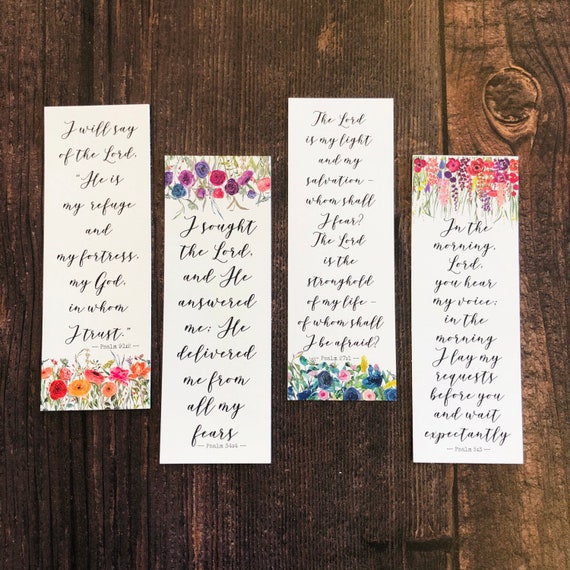 I will say
of the Lord,
"He is
my refuge
and
my fortress,
my God,
in whom
I trust."
— Psalm 91:2 —
I sought
the Lord,
and He
answered
me; He
delivered
me from
all my
fears
— Psalm 34:4 —
The Lord
is my light
and my
salvation –
whom shall
I fear?
The Lord
is the
stronghold
of my life –
of whom shall
I be afraid?
— Psalm 27:1 —
In the
morning,
Lord,
you hear
my voice;
in the
morning
I lay my
requests
before you
and wait
expectantly
— Psalm 5:3 —